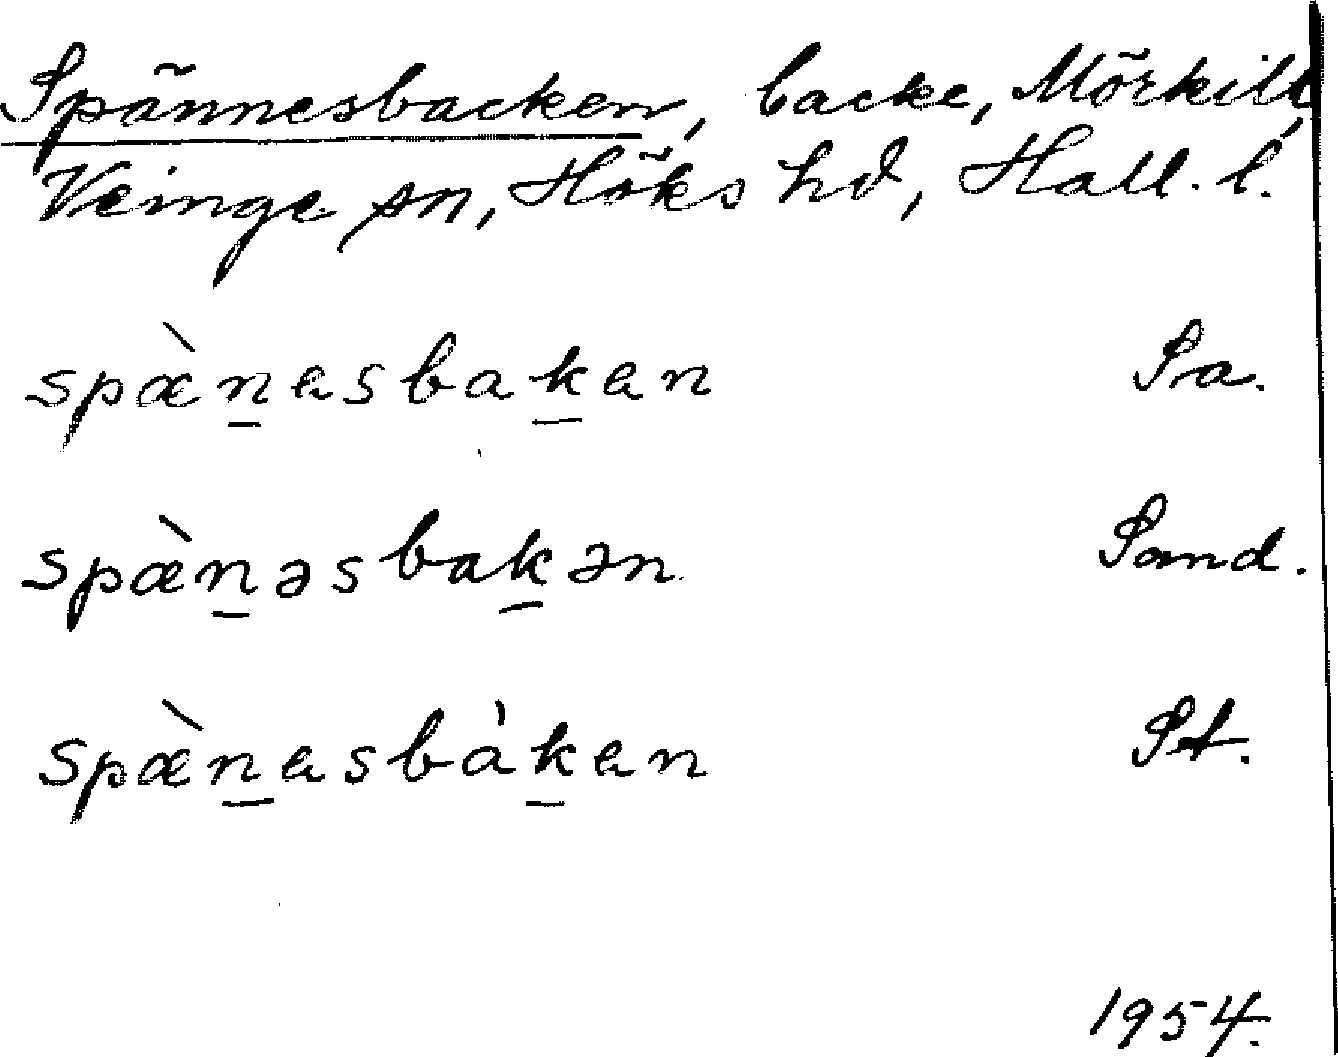 Spännesbacken, backe, Mörkilt,
Veinge sn, Höks hd, Hall. l.
spæ̀n̲esbak̲en Sa.
spæ̀n̲əsbak̲ən Sand.
spæ̀n̲esbàk̲en St.
1954.